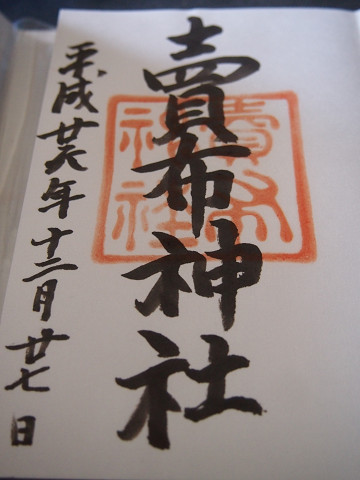 賣布神社
平成廿六年十二月廿七日
賣布
神社